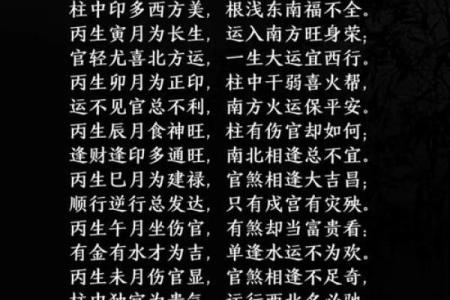 柱中印多西方美，根浅东南福不全。
丙生寅月为长生，运入南方旺身荣；
官轻尤喜北方运，一生大运宜西行。
丙生卯月为正印，柱中干弱喜火帮，
运不见官总不利，南方火运保平安。
丙生辰月食神旺，柱有伤官却如何；
逢财逢印多通旺，南北相逢总不宜。
丙生巳月为建禄，官煞相逢大吉昌；
顺行逆行总发达，只有戌宫有灾殃。
丙生午月坐伤官，有煞却当富贵看；
有金有水才为吉，单逢水运不为欢。
丙生未月伤官显，官煞相逢不足奇，